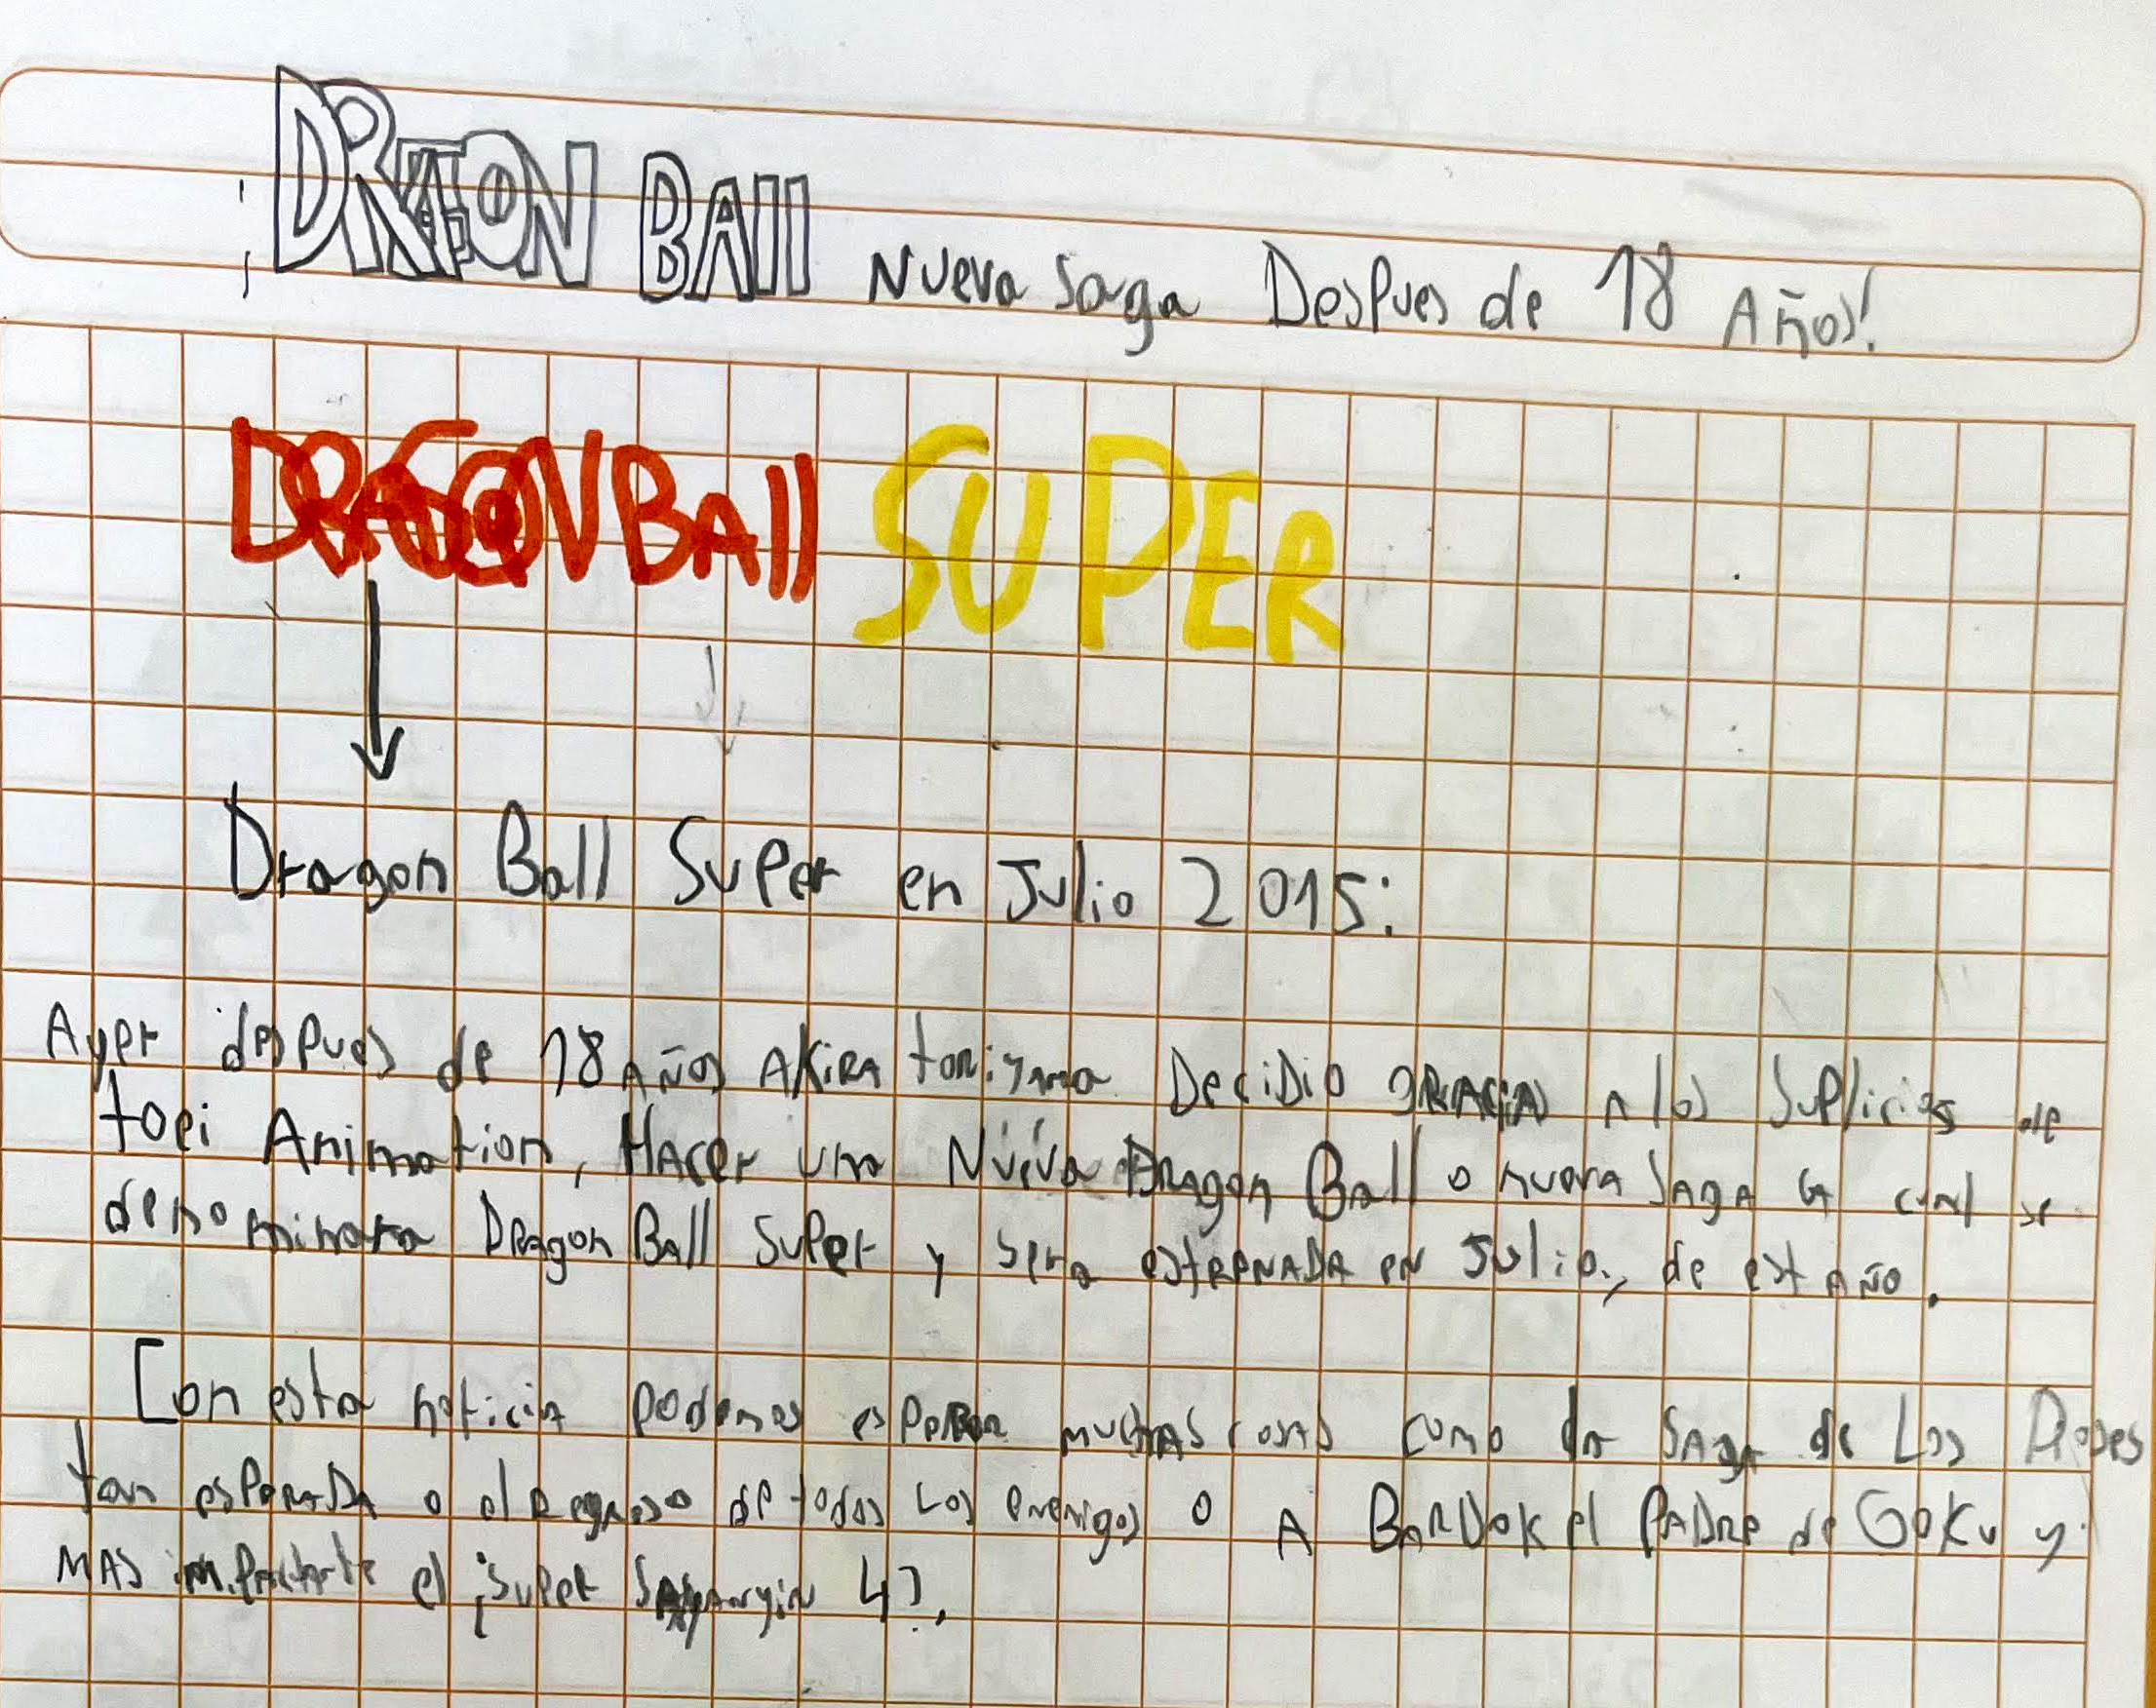 ¡DRAGON BAll Nueva Saga Despues de 18 Años!
DRAGON BAll SUPER
Dragon Ball Super en Julio 2015:
Ayer despues de 18 AÑOS AKiRA toriyma DeciDio gRAciAs A los Suplicios de
toei Animation, HAcer una Nueva DRagon Ball o nueva SAgA la cual se
denominara DRagon Ball Super y sera estRENADA EN Julio, de est AÑO.
Con esta noticia podemos espeRar muchAS cosas como la SAga de Los Dioses
tan espeRADA o el Regreso de todos Los enemigos o A BARDOK el PADRe de GOKU y
MAS importante el ¡Super SAyayin 4?.